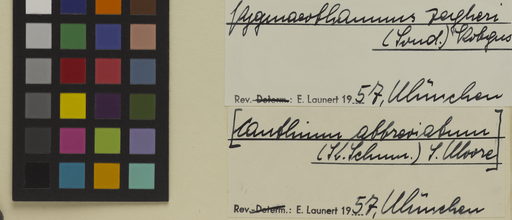 Pygmaeothamnus zeyheri
(Sond.) Robyns
Rev. Determ.: E. Launert 1957, München
[Canthium abbreviatum
(K. Schum.) S. Moore]
Rev. Determ.: E. Launert 1957, München